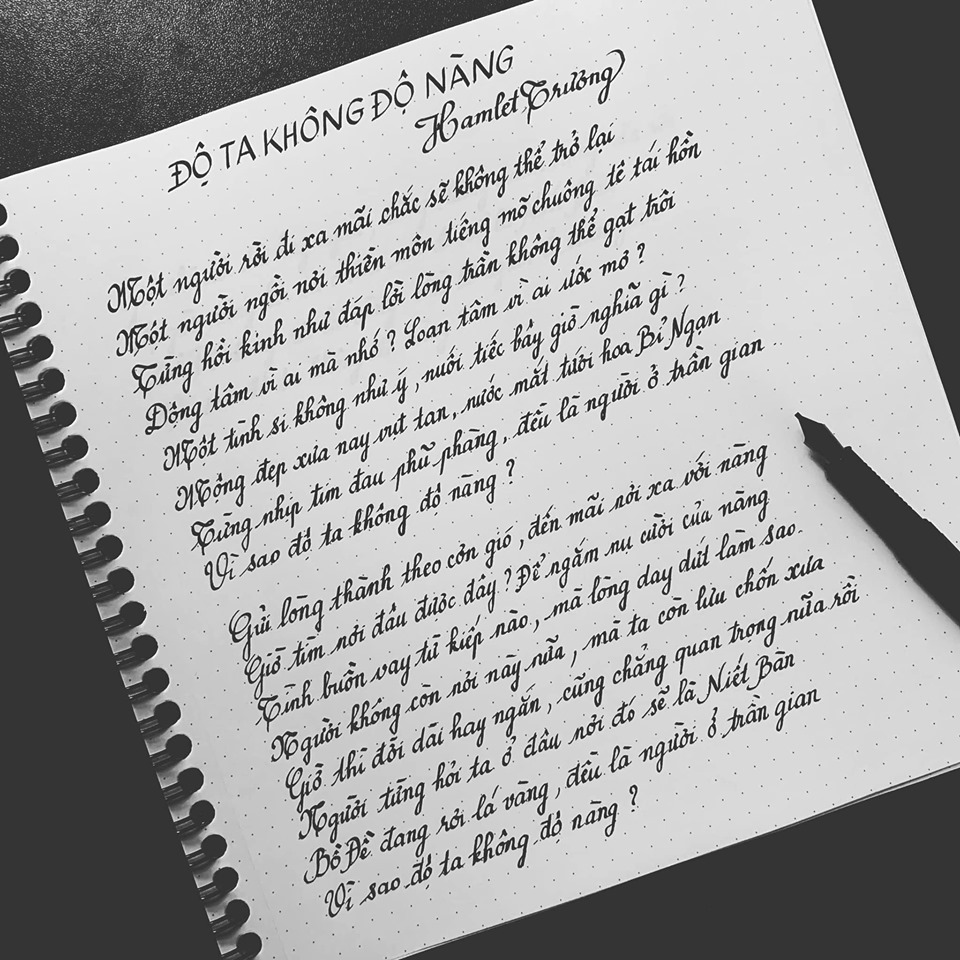 ĐỘ TA KHÔNG ĐỘ NÀNG
Hamlet Trương
Một người rời đi xa mãi chắc sẽ không thể trở lại
Một người ngồi nơi thiền môn tiếng mõ chuông tê tái hồn
Từng hồi kinh như đáp lời lòng trần không thể gạt trôi
Động tâm vì ai mà nhớ? Loạn tâm vì ai ước mơ?
Một tình si không như ý, nuối tiếc bây giờ nghĩa gì?
Mộng đẹp xưa nay vụt tan, nước mắt tưới hoa Bỉ Ngạn
Từng nhịp tim đau phũ phàng, đều là người ở trần gian
Vì sao độ ta không độ nàng?
Gửi lòng thành theo cơn gió, đến mãi nơi xa với nàng
Giờ tìm nơi đâu được đây? Để ngắm nụ cười của nàng
Tình buồn vay từ kiếp nào, mà lòng day dứt làm sao.
Người không còn nơi này nữa, mà ta còn lưu chốn xưa
Giờ thì đời dài hay ngắn, cũng chẳng quan trọng nữa rồi
Người từng hỏi ta ở đâu nơi đó sẽ là Niết Bàn
Bồ Đề đang rơi lá vàng, đều là người ở trần gian
Vì sao độ ta không độ nàng?